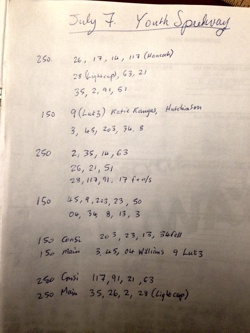 July 7. Youth Speedway
250 26, 17, 14, 117 (Hancock)
28 (Lightscap), 63, 21
35, 2, 91, 51
150 9 (Lutz) Katie Hutchinson
3, 45, 203, 34, 8
250 2, 35, 14, 63
26, 21, 51
28, 117, 91, 17
150 45, 9, 203, 23, 50
04, 34, 8, 13, 3
150 Consi 203, 23, 13, 34 fell
150 Main 3, 45, 04 Williams 9 Lutz
250 Consi 117, 91, 21, 63
250 Main 35, 26, 2, 28 (Lightscap)